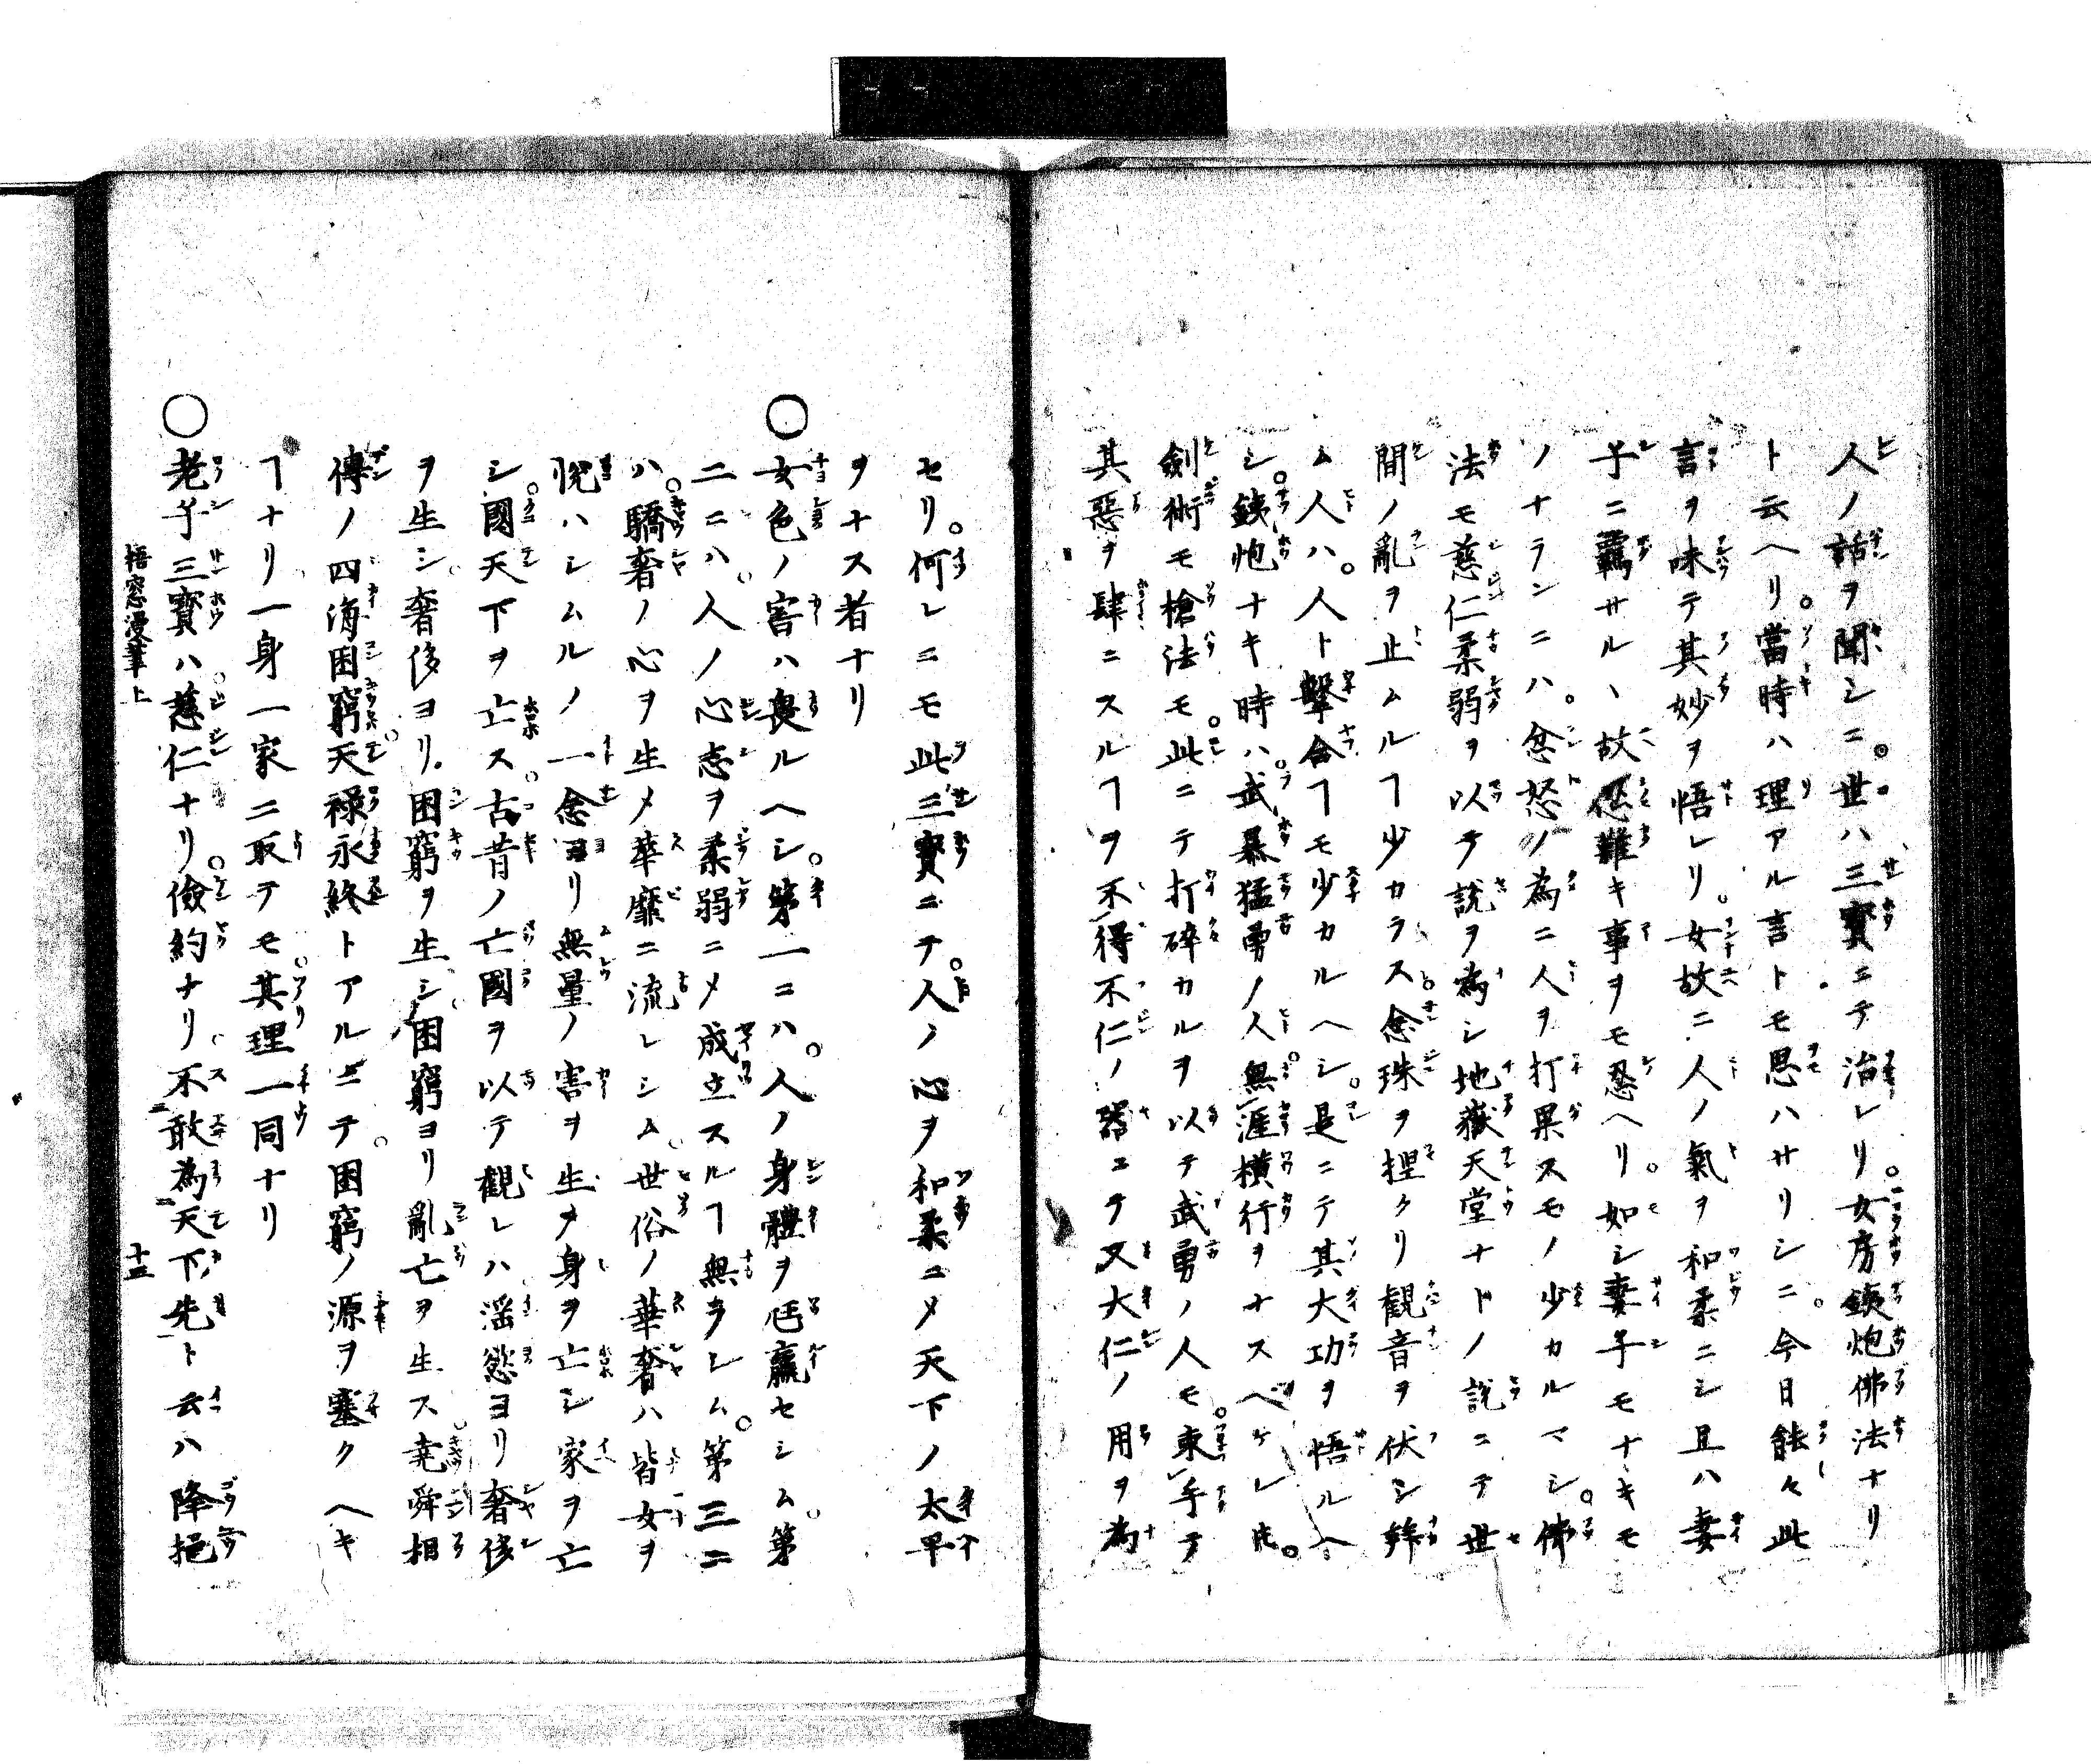 人ノ話ヲ聞シニ。世ハ三寳ニテ治レリ。女房銕炮佛法ナリ
ト云ヘリ。當時ハ理アル言トモ思ハサリシニ。今日能々此
言ヲ味テ其妙ヲ悟レリ。女故ニ人ノ氣ヲ和柔ニシ且ハ妻
子ニ羈サルヽ故。忍難キ事ヲモ忍ヘリ。如シ妻子モナキモ
ノナランニハ。忿怒ノ為ニ人ヲ打果スモノ少カルマシ。佛
法モ慈仁柔弱ヲ以テ説ヲ為シ地獄天堂ナドノ説ニテ世
間ノ亂ヲ止ムルヿ少カラス。念珠ヲ捏クリ観音ヲ伏シ拜
ム人ハ。人ト擊合ヿモ少カルヘシ。是ニテ其大功ヲ悟ルヘ
シ。銕炮ナキ時ハ。武暴猛勇ノ人。無涯横行ヲナスベケレ𪜈。
劍術モ槍法モ。此ニテ打碎カルヲ以テ武勇ノ人モ。束手テ
其惡ヲ肆ニスルヿヲ不得不仁ノ器ニテ又大仁ノ用ヲ為
セリ。何レニモ此三寳ニテ。人ノ心ヲ和柔ニメ天下ノ太平
ヲナス者ナリ
○女色ノ害ハ畏ルヘシ。第一ニハ。人ノ身體ヲ尫羸セシム。第
二ニハ。人ノ心志ヲ柔弱ニメ成立スルヿ無ラシム。第三ニ
ハ。驕奢ノ心ヲ生メ華靡ニ流レシム。世俗ノ華奢ハ皆女ヲ
悅ハシムルノ一念ヨリ無量ノ害ヲ生ヲ身ヲ亡シ家ヲ亡
シ。國天下ヲ亡ス。古昔ノ亡國ヲ以テ観レハ淫慾ヨリ奢侈
ヲ生シ。奢侈ヨリ。困窮ヲ生シ。困窮ヨリ亂亡ヲ生ス。堯舜相
傳ノ四海困窮。天禄永終トアルニテ。困窮ノ源ヲ塞クヘキ
ヿナリ一身一家ニ取テモ。其理一同ナリ
○老子三寳ハ。慈仁ナリ。儉約ナリ。不敢為天下先ト云ハ降挹
悟窓漫筆上
十三